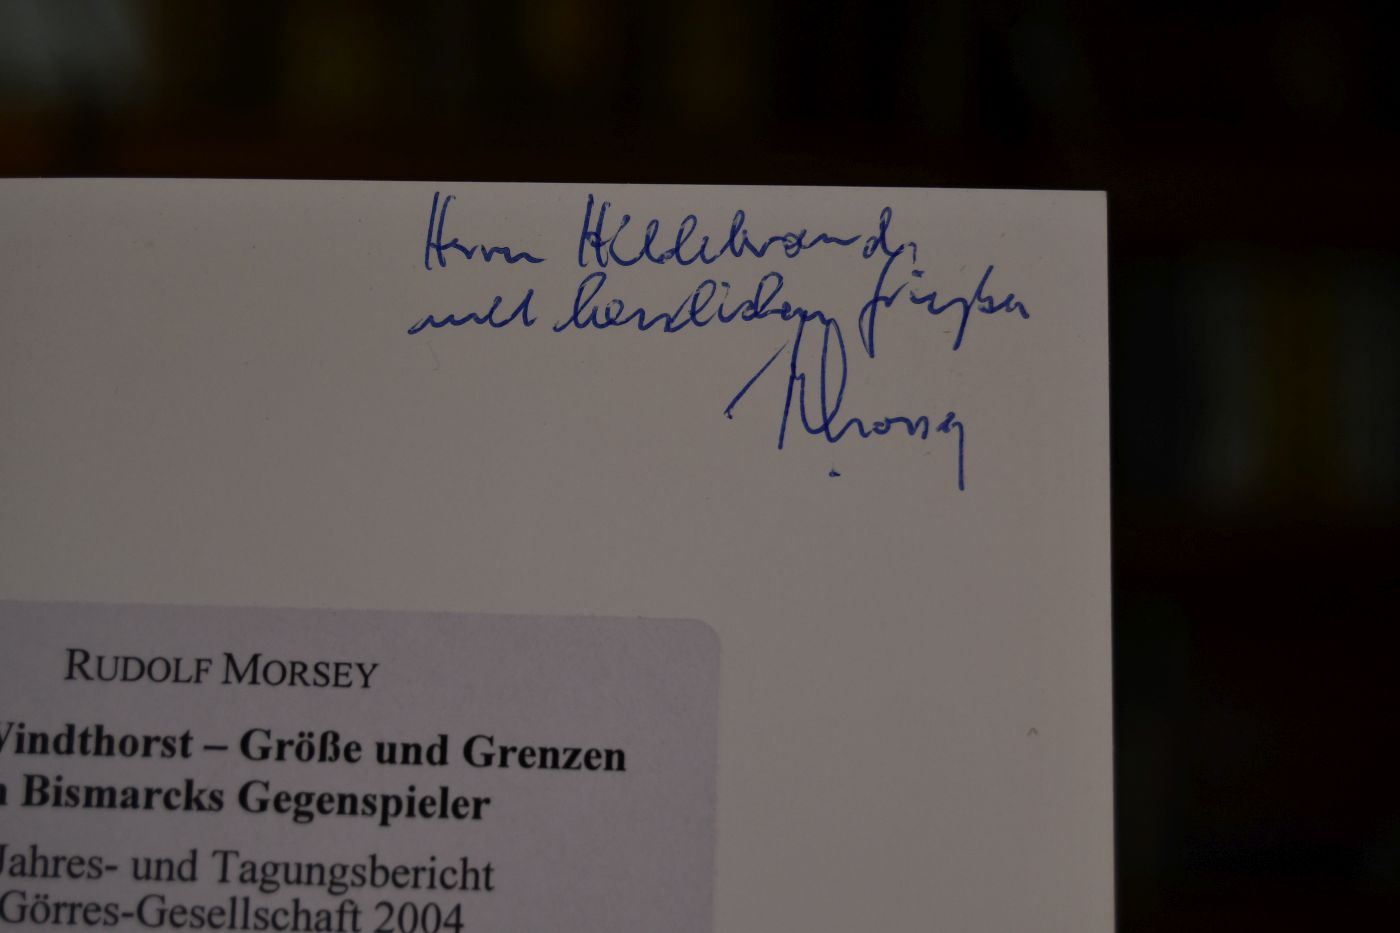 Herrn Hildebrand,
mit herzlichen Grüßen
RMorsey
RUDOLF MORSEY
Windthorst – Größe und Grenzen
n Bismarcks Gegenspieler
Jahres- und Tagungsbericht
Görres-Gesellschaft 2004